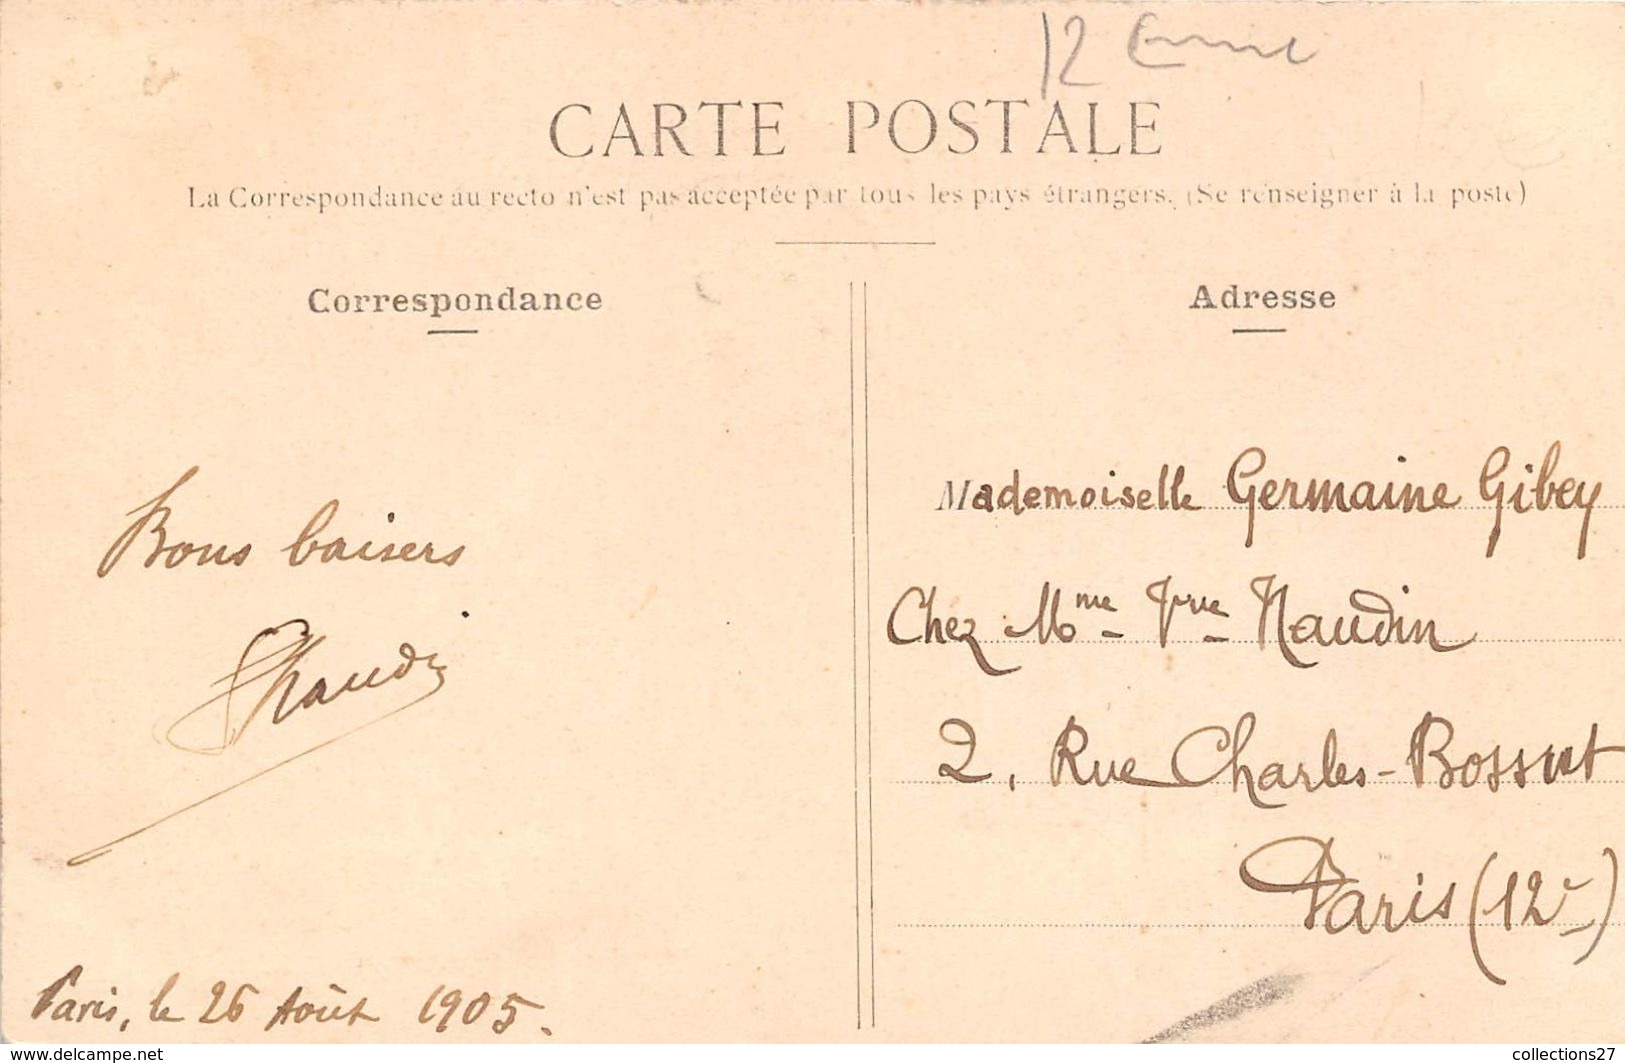 12 eme
CARTE POSTALE
La Correspondance au recto n'est pas acceptée par tous les pays étrangers. (Se renseigner à la poste)
Correspondance
Bons baisers
Paris, le 26 Août 1905.
Adresse
Mademoiselle Germaine Gibey
Chez Mme Vve Naudin
2, Rue Charles-Bossut
Paris (12e)
https://www.delcampe.net
collections27